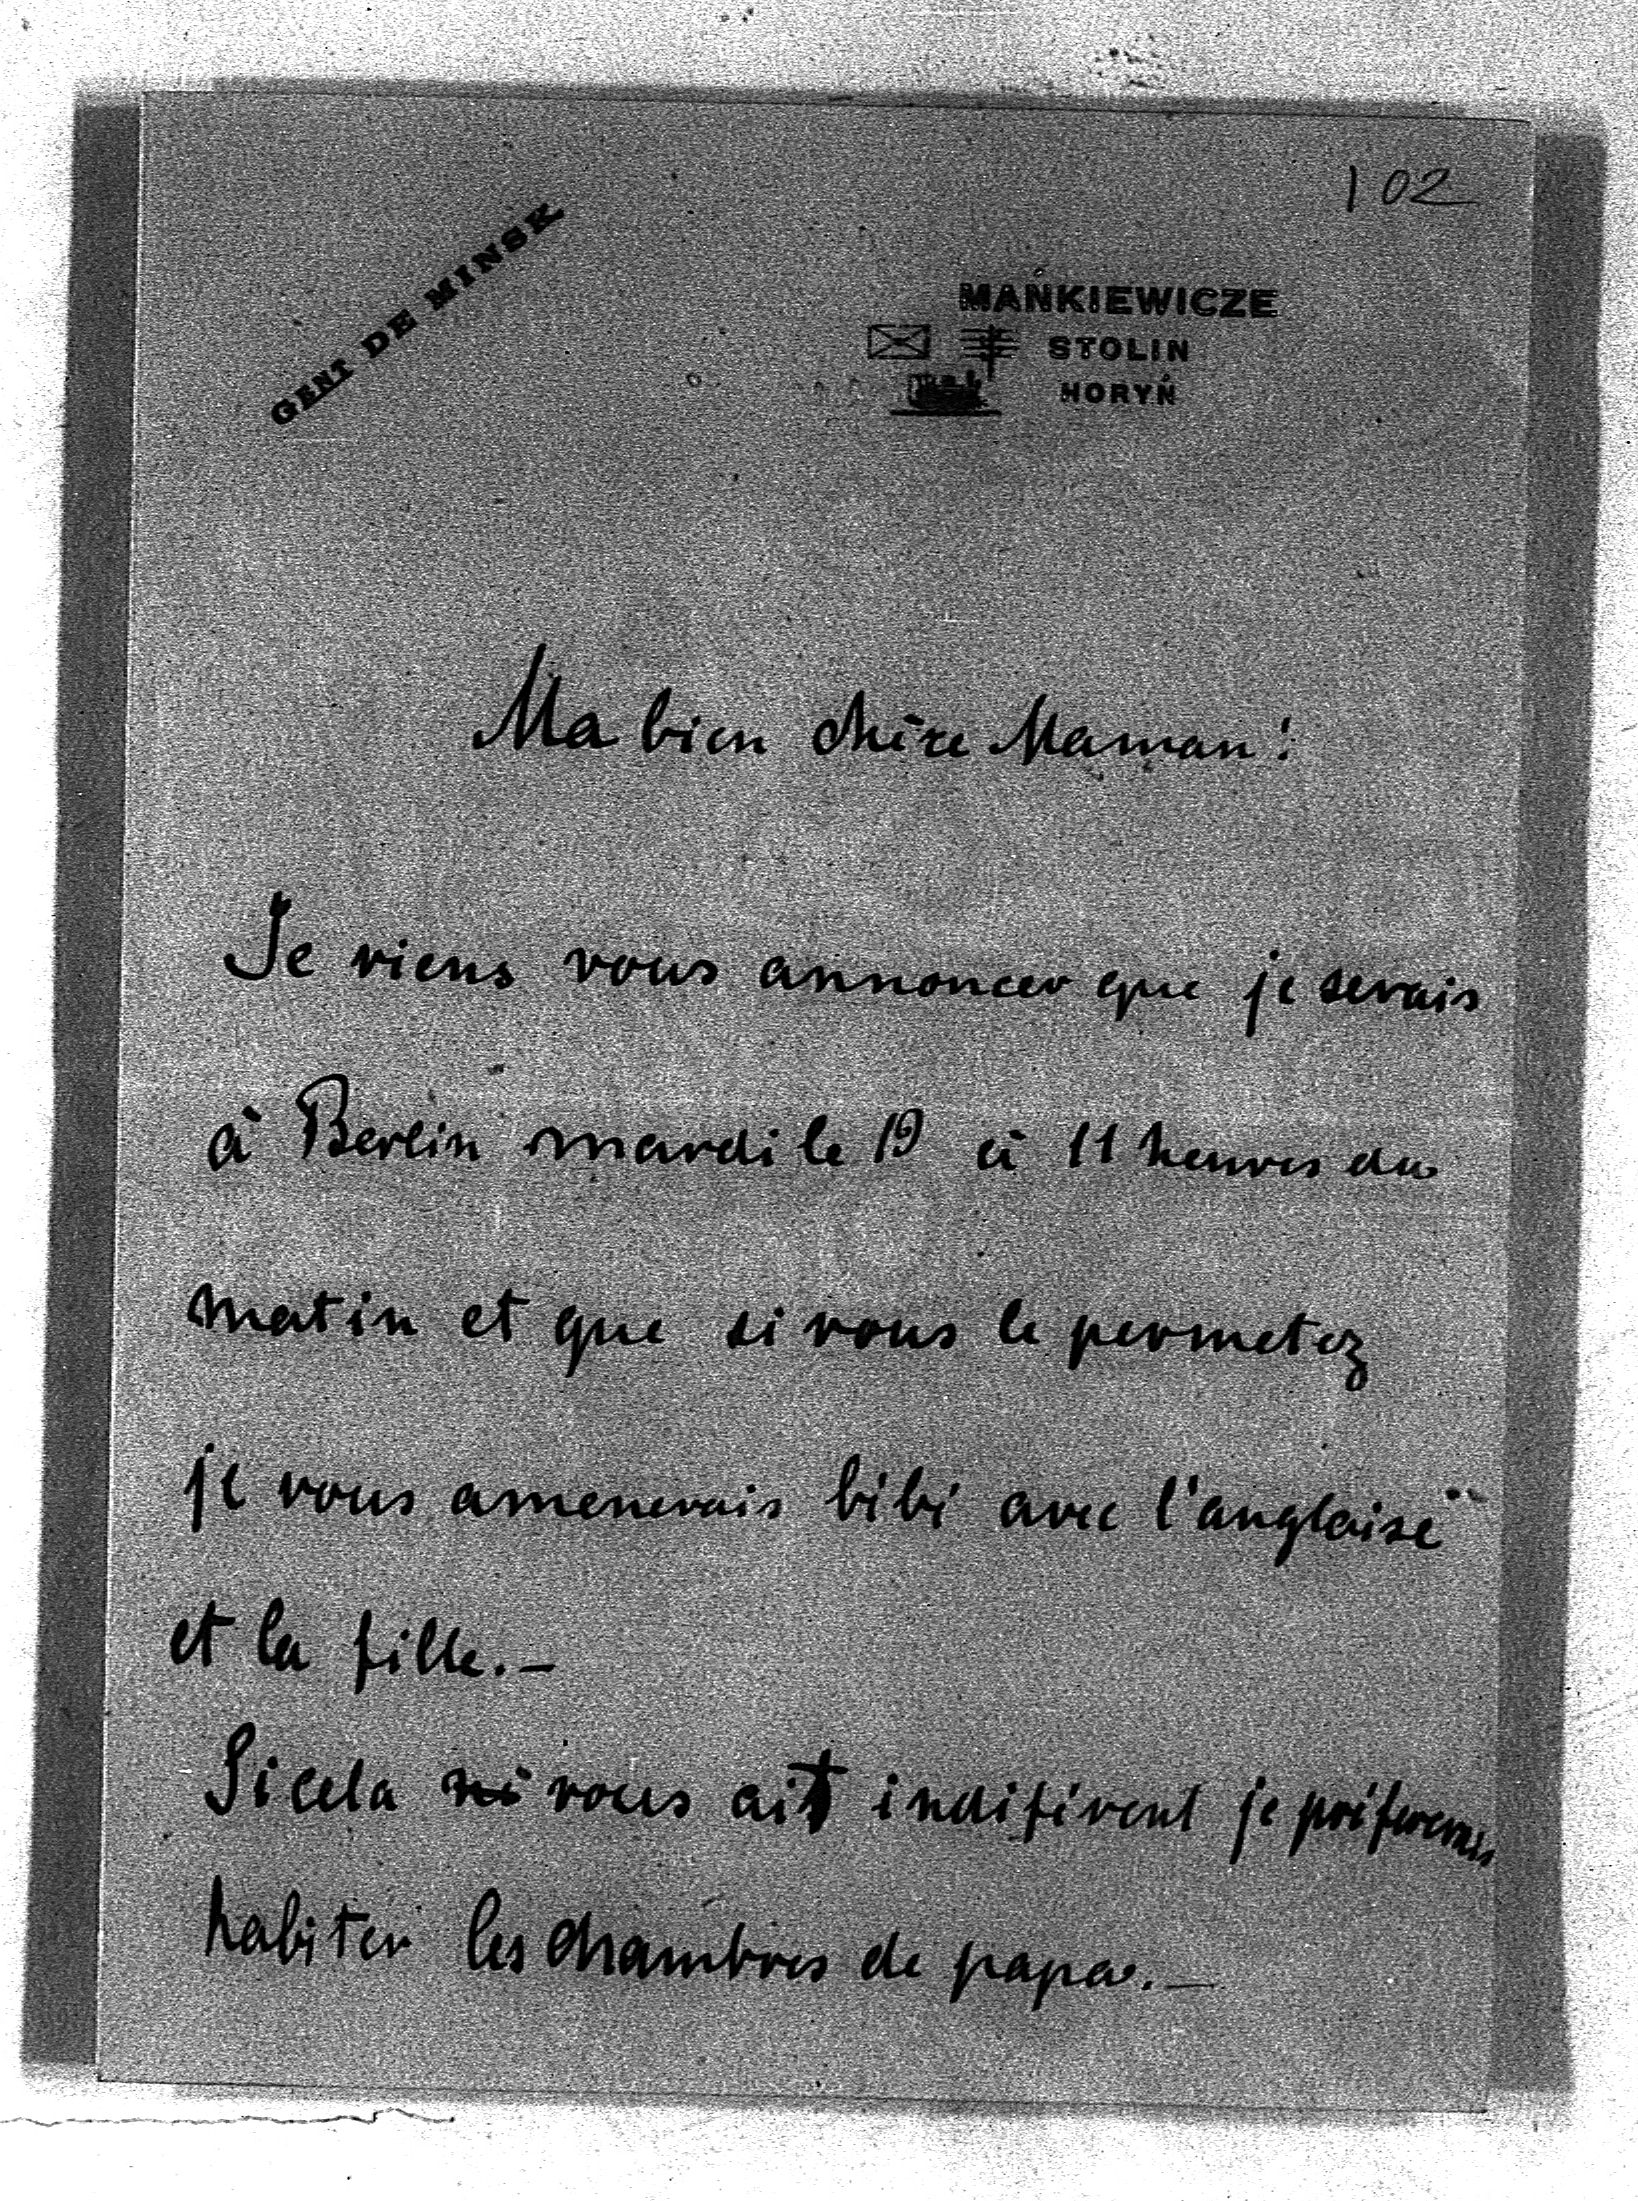 102
GENT DE MINSK
MAŃKIEWICZE
STOLIN
HORYŃ
Ma bien chère Maman!
Je viens vous annoncer que je serais
à Berlin mardi le 19 à 11 heures du
matin et que si vous le permetez
je vous amenerais bibi avec l'anglaise
et la fille.—
Si cela vous ait indiférent je préfererais
habiter les chambres de papa.—